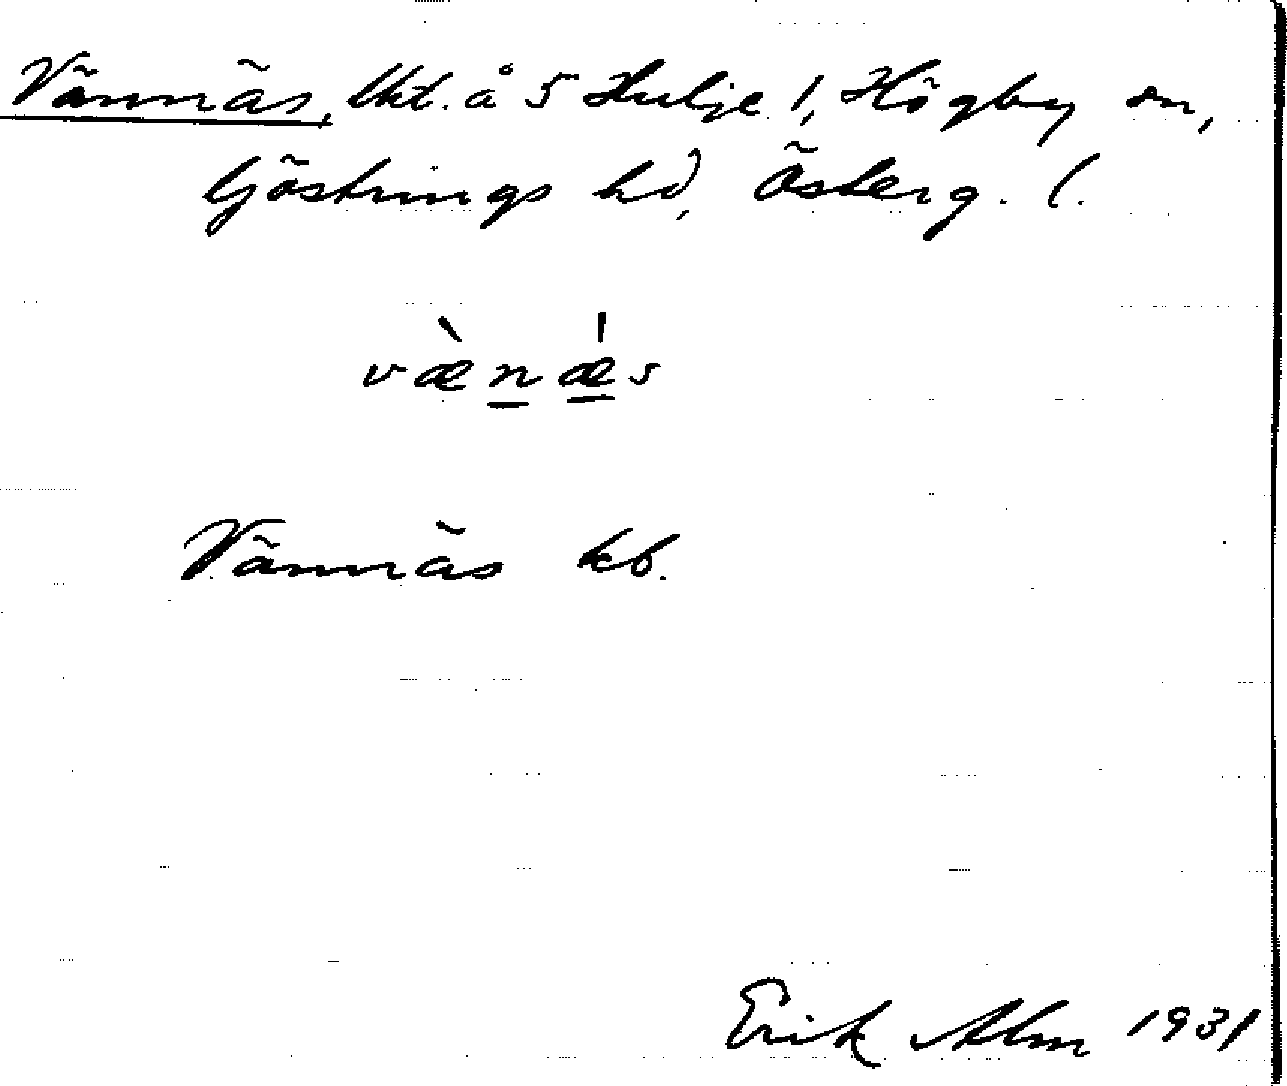 Vännäs, lht. å 5 Hulje 1, Högby sn,
Göstrings hd, Österg. l.
væ̀nǽs
Vännäs kb.
Erik Alm 1931